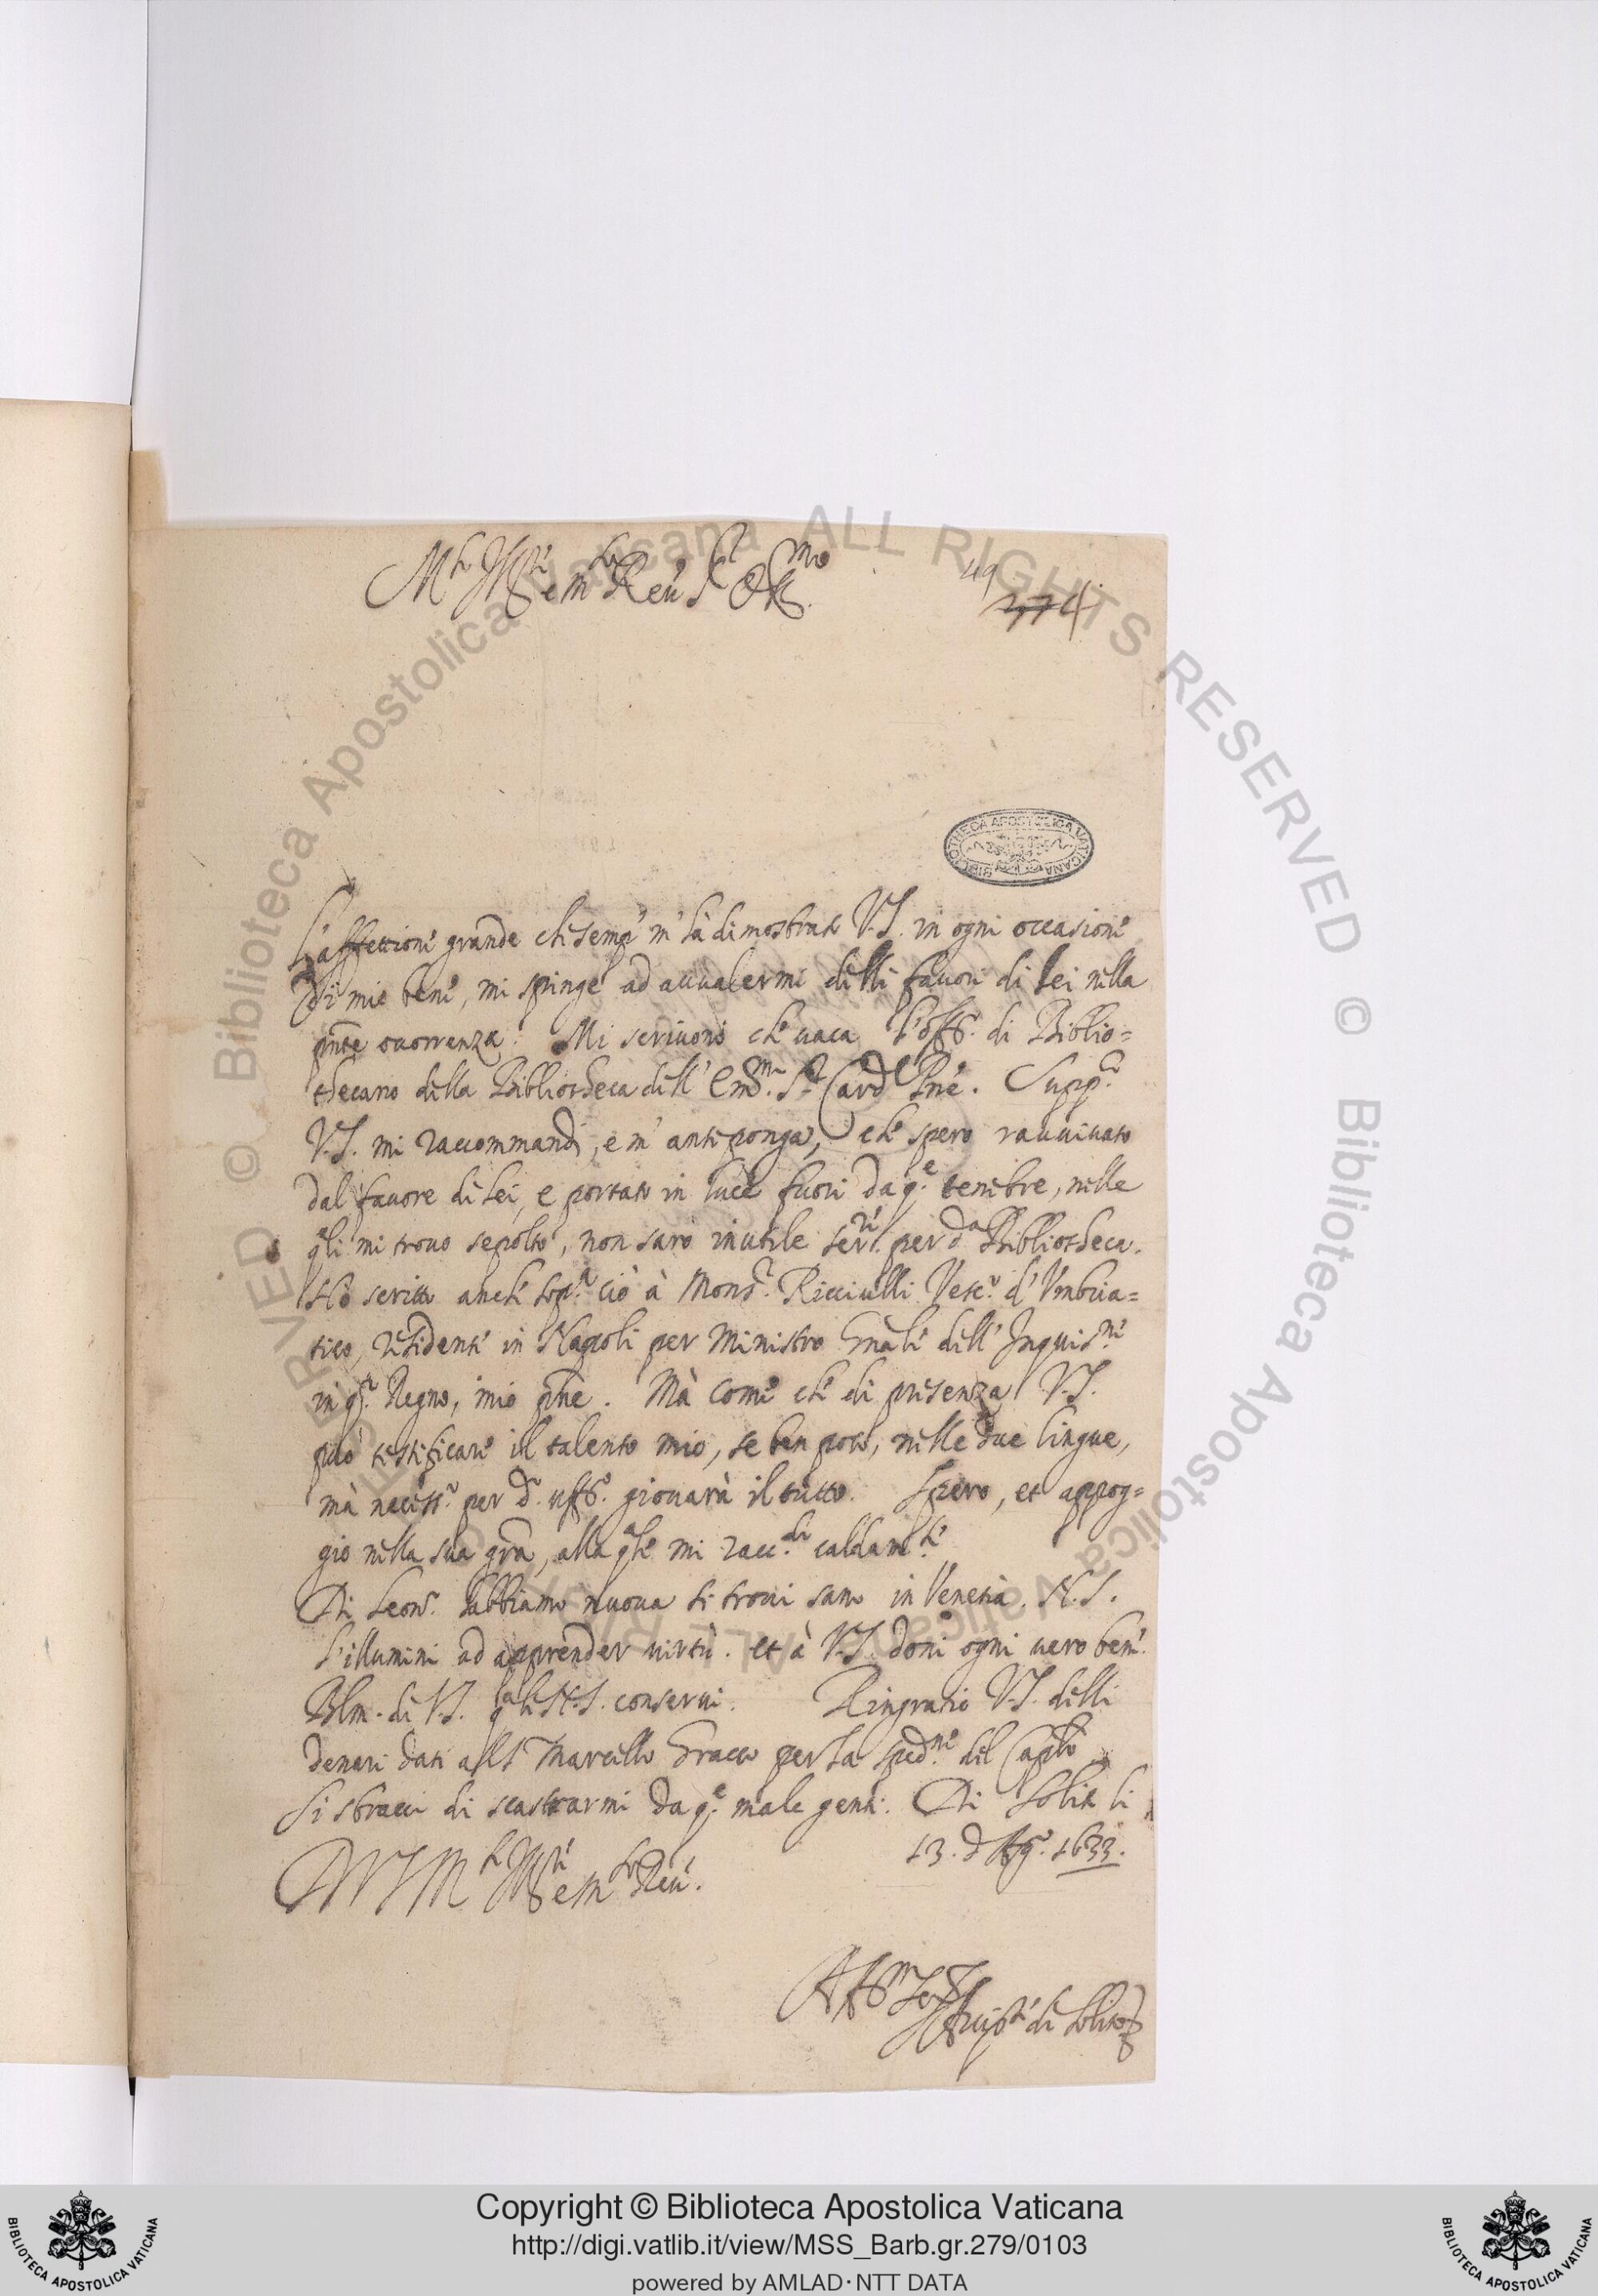 M.to Ill.re e m.to Rev. S.r Oss.mo
49
274
BIBLIOTHECA APOSTOLICA VATICANA
L'affettione grande che semp.e m'hà dimostrata V.S. in ogni occasione
di mio bene, mi spinge ad avvalermi delli favori di lei nella
pnte occorrenza. Mi scrivono che vaca l'off.o di Biblio=
thecario della Bibliotheca dell' Em.mo S.r Card.l Pne. Supp.co
V.S. mi raccommandi, e m'antiponga, che spero ravvivato
dal favore di lei, e portato in luce fuori da q.e tenebre, nelle
q.li mi trovo sepolto, non sarò inutile ser.re per d.a Bibliotheca.
Hò scritto anche sop.a ciò à Mons.r Ricciulli Vesc.o d'Umbria=
tico, residente in Napoli per Ministro gnale dell' Inquis.ne
in q.o Regno, mio pne. Mà come che di presenza V.S.
può testificare il talento mio, se ben poco, nelle due lingue,
mà necess.o per d.o uff.o giovarà il tutto. Spero, et appog=
gio nella sua gra, alla q.le mi racc.do caldam.te
Di Leon.o habbiamo nuova si trovi sano in Venetia. N.S.
l'illumini ad apprender virtù. et à V.S. doni ogni vero bene.
Blm. di V.S. q.le N.S. conservi. Ringratio V.S. delli
denari dati al S.r Marcello Gracco per la sped.ne del
Si sbracci di scastrarmi da q.e male genti. Di Soleto li
13. d' Ag.o 1633.
D V S M.to Ill.re e m.to Rev.
Aff.mo Ser.
Arcip.te di Soleto
Copyright © Biblioteca Apostolica Vaticana
http://digi.vatlib.it/view/MSS_Barb.gr.279/0103
powered by AMLAD·NTT DATA
BIBLIOTECA APOSTOLICA VATICANA
BIBLIOTECA APOSTOLICA VATICANA
© Biblioteca Apostolica Vaticana ALL RIGHTS RESERVED © Biblioteca Apostolica Vaticana ALL RIGHTS RESERVED